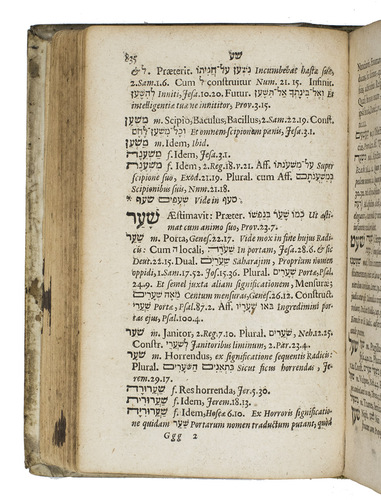 835 שע
& ל. Præterit. נִשְׁעָן עַל־חֲנִיתוֹ Incumbebat hastæ suæ,
2.Sam.1.6. Cum ל construitur Num.21.15. Infinit.
לְהִשָּׁעֵן Inniti, Jesa.10.20. Futur. וְאֶל־בִּינָתְךָ אַל־תִּשָּׁעֵן Et
intelligentiæ tuæ ne innititor, Prov.3.15.
מִשְׁעָן m. Scipio, Baculus, Bacillus, 2.Sam.22.19. Const.
וְכֹל מִשְׁעַן־לֶחֶם Et omnem scipionem panis, Jesa.3.1.
מַשְׁעֵן m. Idem, Ibid.
מַשְׁעֵנָה f. Idem, Jesa.3.1.
מִשְׁעֶנֶת f. Idem, 2.Reg.18.v.21. Aff. עַל מִשְׁעַנְתּוֹ Super
scipione suo, Exod.21.19. Plural. cum Aff. בְּמִשְׁעֲנֹתָם
Scipionibus suis, Num.21.18.
* שעף שעפים Vide in סעף
שָׁעַר Æstimavit: Præter. כְּמוֹ שָׁעַר בְּנַפְשׁוֹ Ut æsti-
mat cum animo suo, Prov.23.7.
שַׁעַר m. Porta, Genes.22.17. Vide mox in fine hujus Radi-
cis: Cum ה locali, שַׁעְרָה In portam, Jesa.28.6. & sic
Deut.22.15. Dual. שַׁעֲרַיִם Saharajim, Proprium nomen
oppidi, 1.Sam.17.52. Jos.15.36. Plural. שְׁעָרִים Portæ, Psal.
24.9. Et semel juxta aliam significationem, Mensuræ;
מֵאָה שְׁעָרִים Centum mensuras, Genes.26.12. Construct.
שַׁעֲרֵי Portæ, Psal.87.2. Aff. בֹּאוּ שְׁעָרָיו Ingredimini por-
tas ejus, Psal.100.4.
שֹׁעֵר m. Janitor, 2.Reg.7.10. Plural. שֹׁעֲרִים, Neh.12.25.
Constr. לְשֹׁעֲרֵי Janitoribus liminum, 2.Par.23.4.
שֹׁעָר m. Horrendus, ex significatione sequentis Radicis:
Plural. כַּתְּאֵנִים הַשֹּׁעָרִים Sicut ficus horrendas, Je-
rem.29.17.
שַׁעֲרוּרָה f. Res horrenda, Jer.5.30.
שַׁעֲרוּרִית f. Idem, Jerem.18.13.
שַׁעֲרוּרִיָּה f. Idem, Hosea 6.10. Ex Horroris significatio-
ne quidam שַׁעַר Portarum nomen traductum putant, quòd
Ggg 2